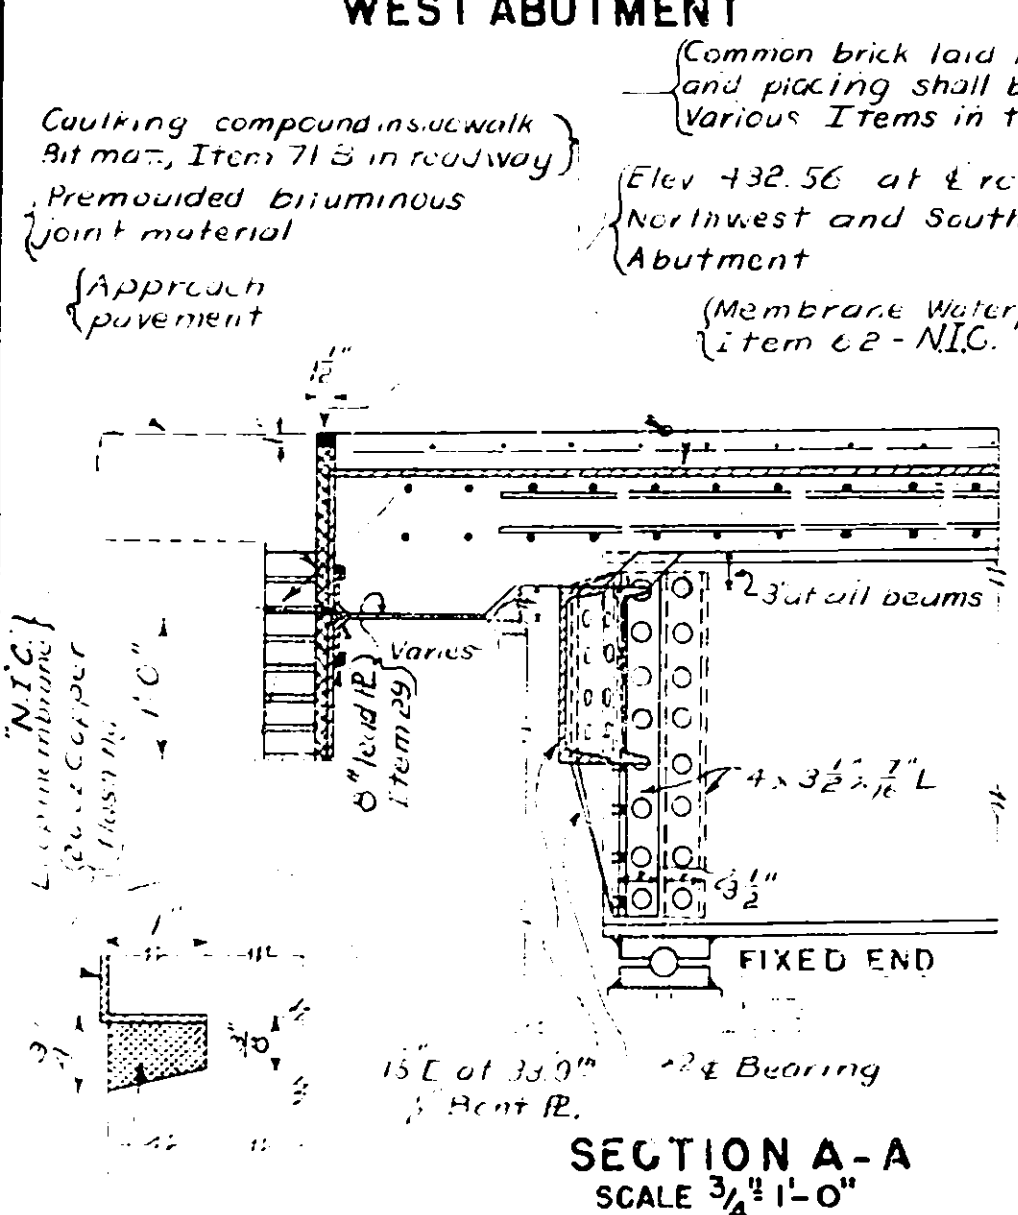 WEST ABUTMENT
Common brick laid
and placing shall b
Various Items in t
Caulking compound in sidewalk
Bit mat, Item 71 B in roadway
Premoulded bituminous
joint material
Elev 432.56 at ℄ ro
Northwest and South
Abutment
Approach
pavement
Membrane Water
Item 62 - N.I.C.
1 1/2"
3" at all beams
Varies
8" lead PL
Item 29
"N.I.C."
Copper
1'0"
4 x 3 1/2" x 7/16" L
3 1/2"
FIXED END
1"
3/8"
15" [ at 33.9#
Bent PL.
℄ Bearing
SECTION A-A
SCALE 3/4" = 1'-0"